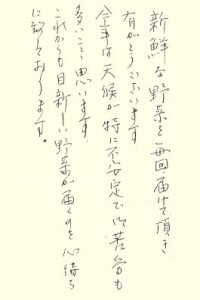 新鮮な野菜を毎回届けて頂き
有がとうございます
今年は天候が特に不安定で御苦労も
多いことと思います。
これからも目新しい野菜が届くのを心待ち
に致しております。